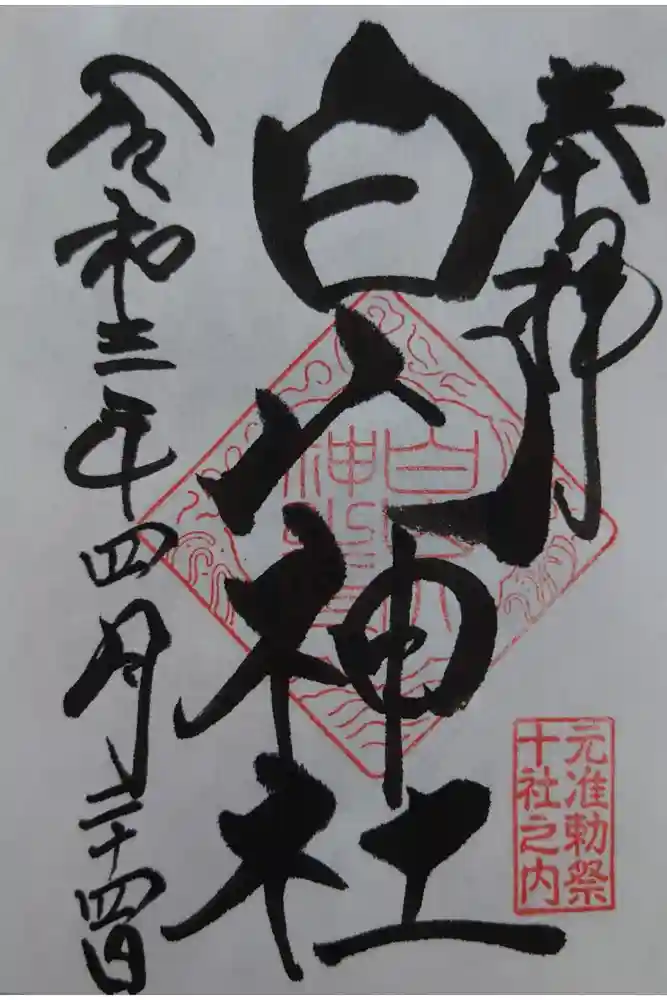 奉拝
白山神社
令和三年四月二十四日
白山
神社
元准勅祭
十社之内